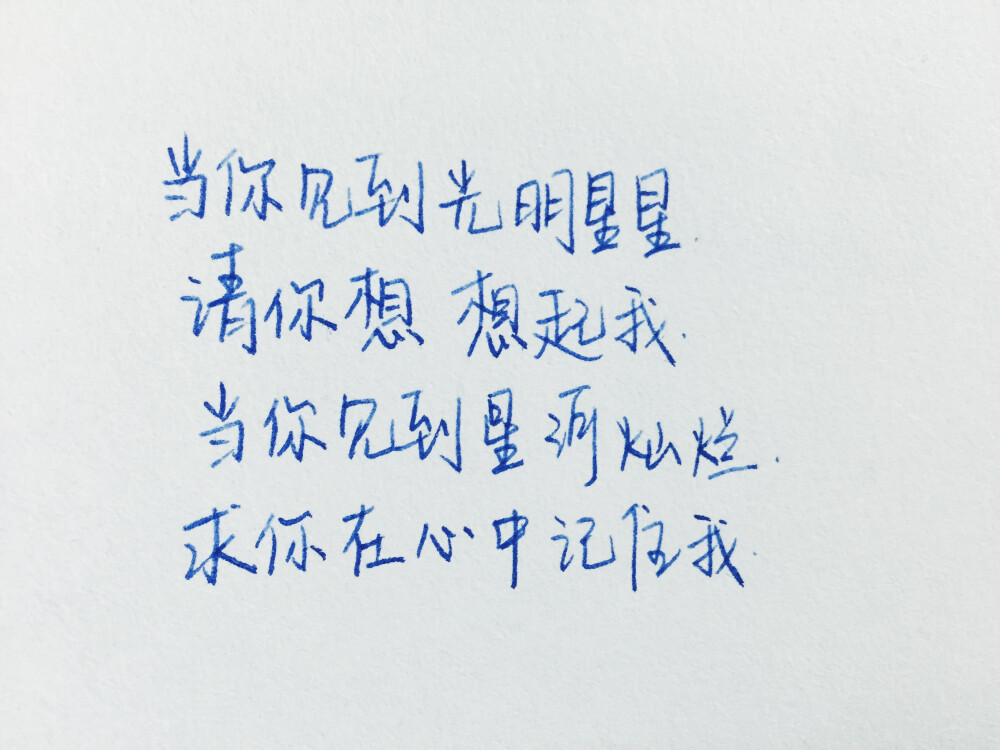 当你见到光明星星.
请你想 想起我.
当你见到星河灿烂.
求你在心中记住我.